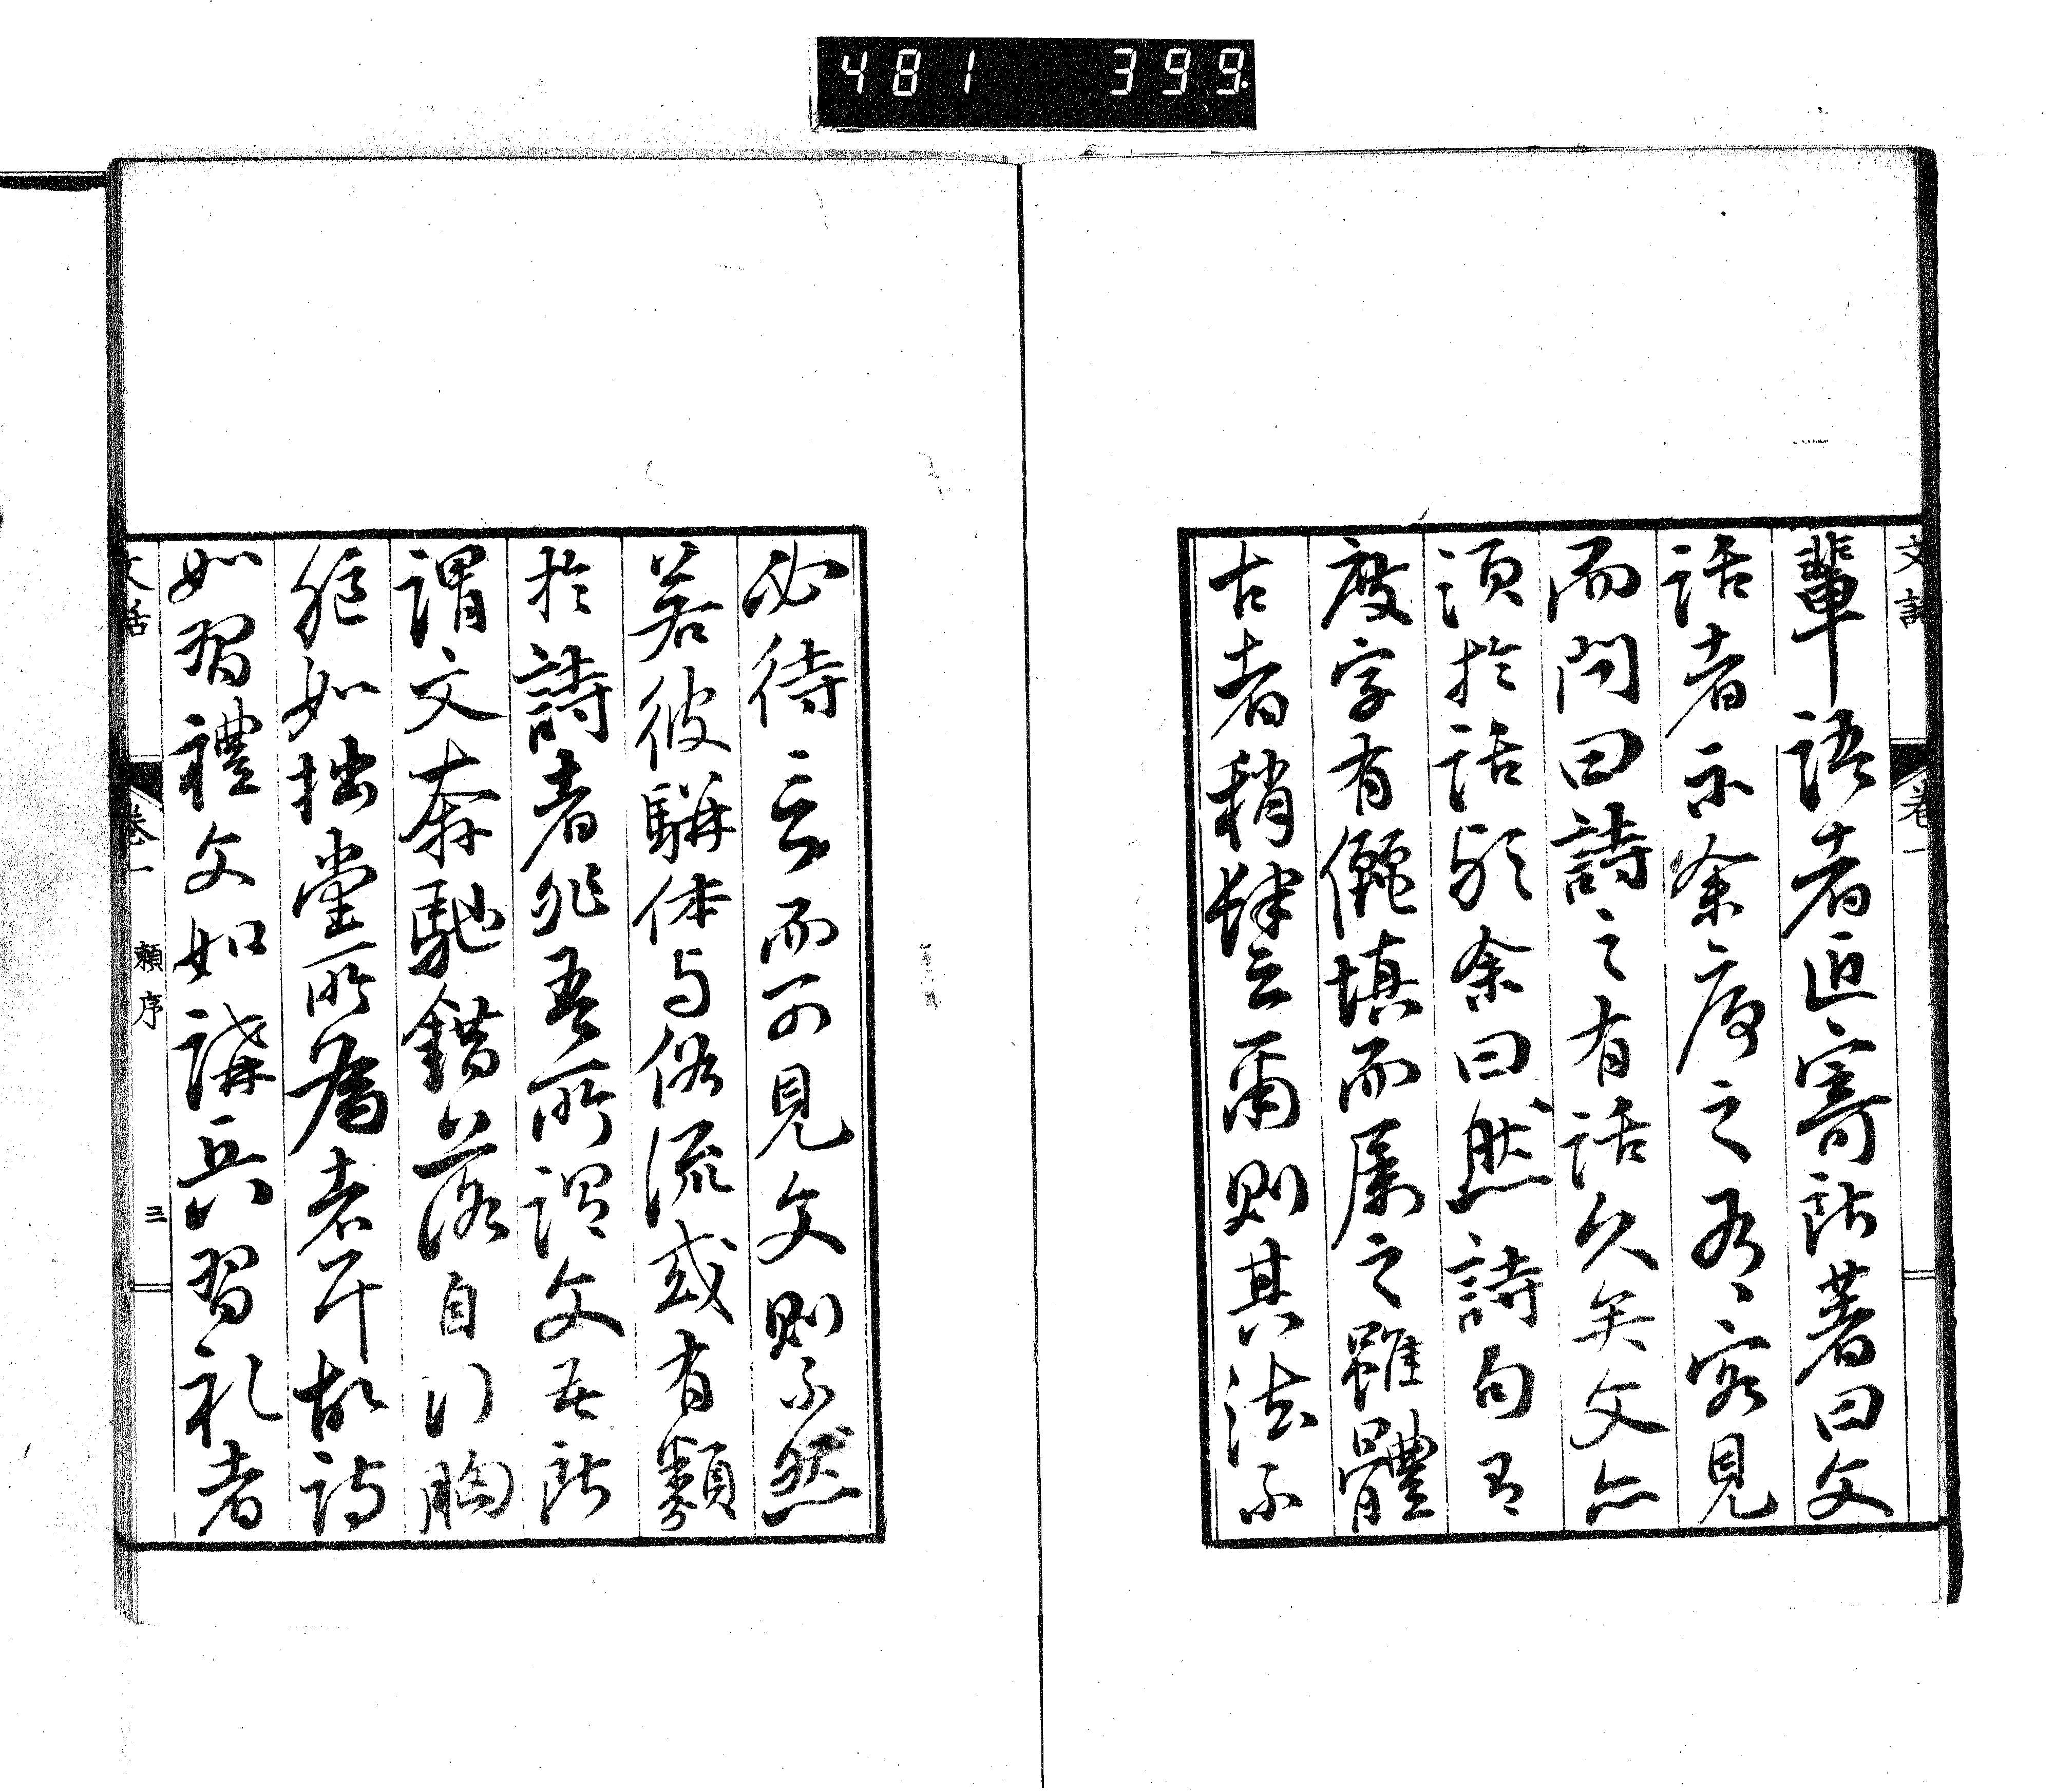 481 399.
文話
卷一
輩語者近寄所著曰文
話者示余序之有客見
而問曰詩之有話久矣文亦
須於話歟余曰然詩句有
度字有儷填而屬之雖體
古者稍肆云爾則其法不
必待言而可見文則不然
若彼駢体与俗流或有類
於詩者非吾所謂文吾所
謂文奔馳錯落自行胸
臆如拙堂所為者耳故詩
如習禮文如講兵習礼者
文話
卷一
賴序
三